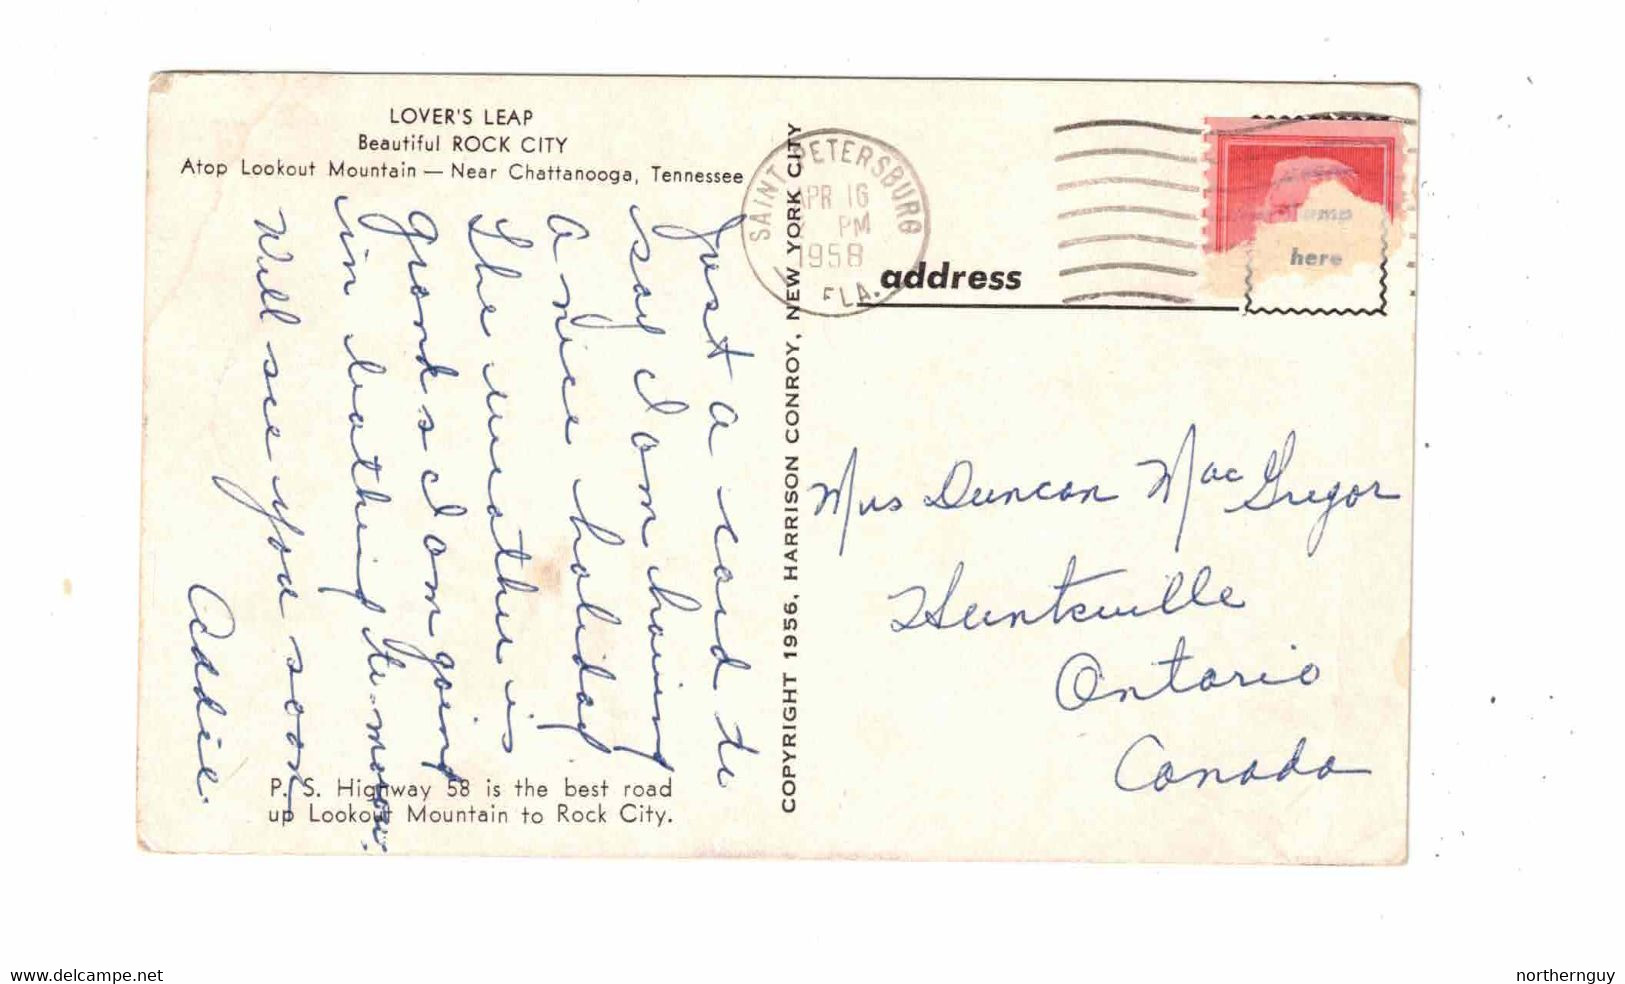 LOVER'S LEAP
Beautiful ROCK CITY
Atop Lookout Mountain — Near Chattanooga, Tennessee
Just a card to
say I am having
a nice holiday
The weather is
grand & I am going
in bathing to-morow.
Will see you soon
Addie.
P. S. Highway 58 is the best road
up Lookout Mountain to Rock City.
COPYRIGHT 1956, HARRISON CONROY, NEW YORK CITY
SAINT PETERSBURG
APR 16
PM
1958
FLA.
address
here
Mrs Duncan MacGregor
Huntsville
Ontario
Canada
www.delcampe.net
northernguy